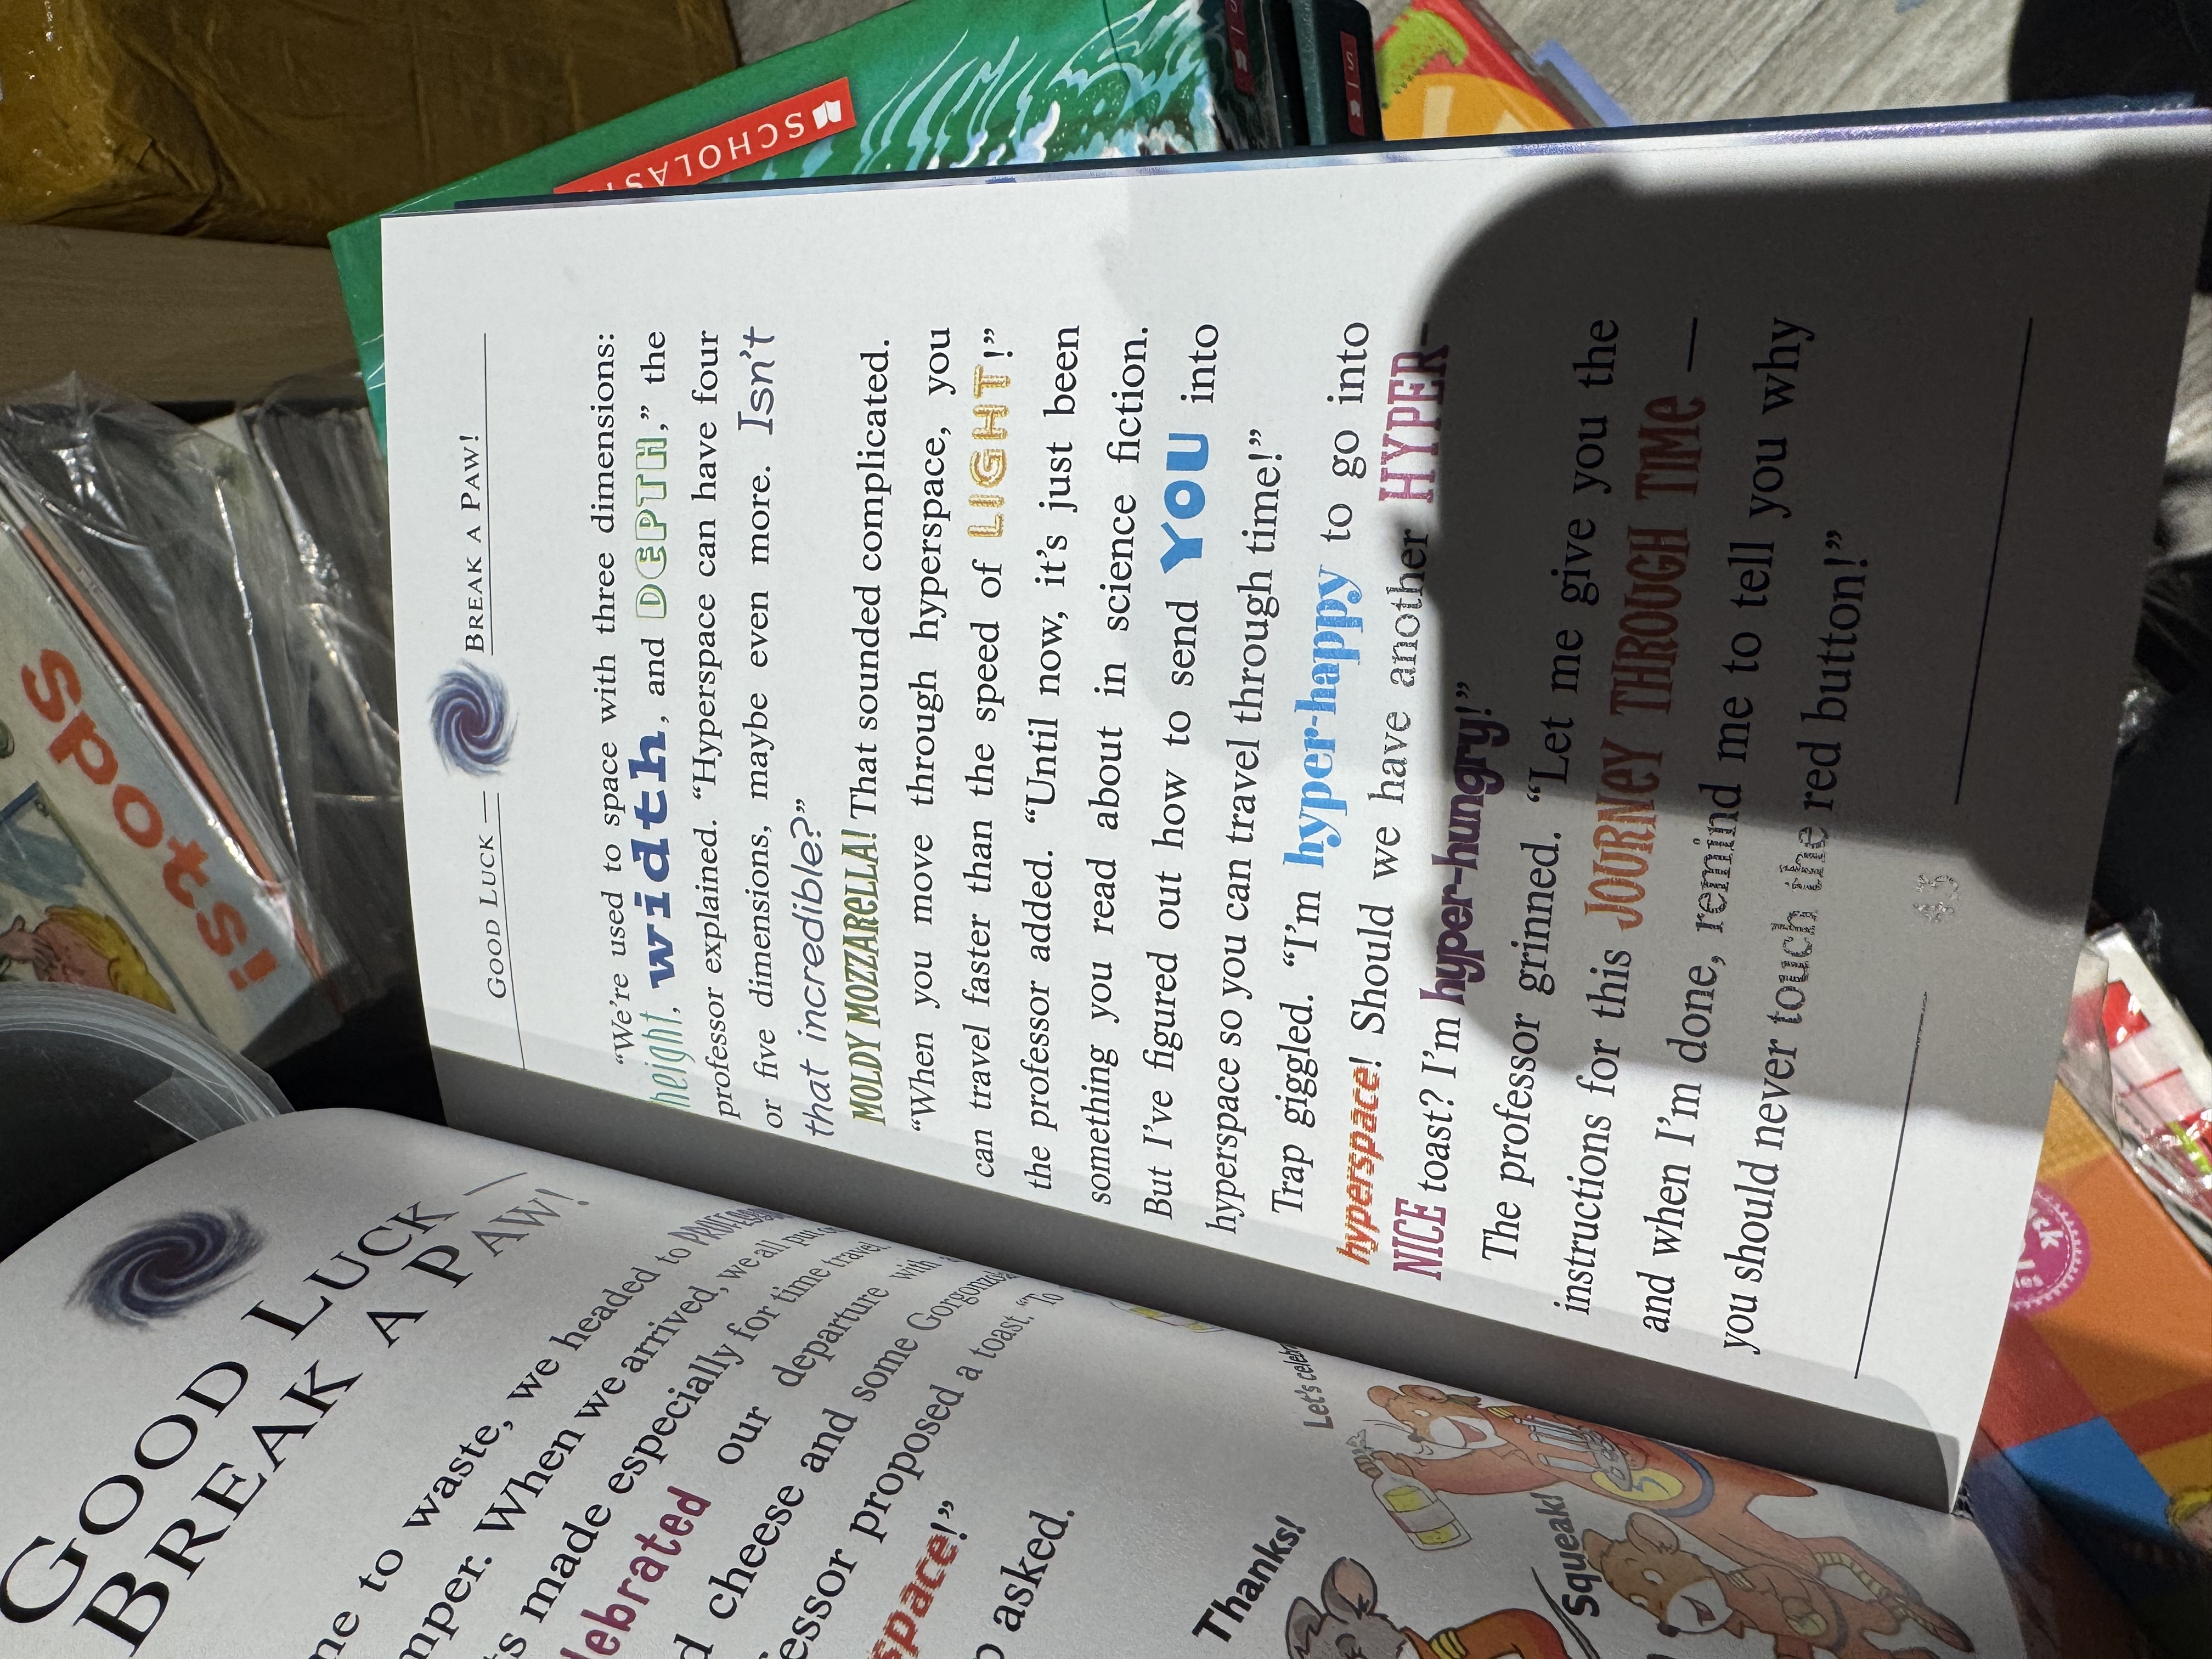 GOOD LUCK —
BREAK A PAW!
me to waste, we headed to
mper. When we arrived, we all
ts made especially for time travel.
lebrated our departure with
d cheese and some
essor proposed a toast. "To
space!"
asked.
Let's
Thanks!
Squeak!
GOOD LUCK — BREAK A PAW!
"We're used to space with three dimensions:
height, width, and DEPTH," the
professor explained. "Hyperspace can have four
or five dimensions, maybe even more. Isn't
that incredible?"
MOLDY MOZZARELLA! That sounded complicated.
"When you move through hyperspace, you
can travel faster than the speed of LIGHT!"
the professor added. "Until now, it's just been
something you read about in science fiction.
But I've figured out how to send YOU into
hyperspace so you can travel through time!"
Trap giggled. "I'm hyper-happy to go into
hyperspace! Should we have another HYPER-
NICE toast? I'm hyper-hungry!"
The professor grinned. "Let me give you the
instructions for this JOURNEY THROUGH TIME —
and when I'm done, remind me to tell you why
you should never touch the red button!"
SCHOLAST
spots!